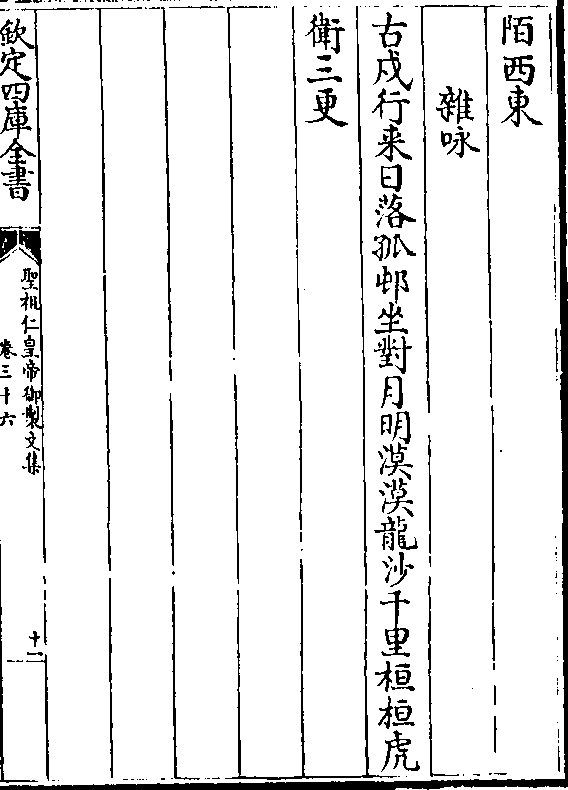 陌西東
雜咏
古戍行来日落孤邨坐對月明漠漠龍沙千里桓桓虎
衛三更
欽定四庫全書
聖祖仁皇帝御製文集
卷三十六
十一